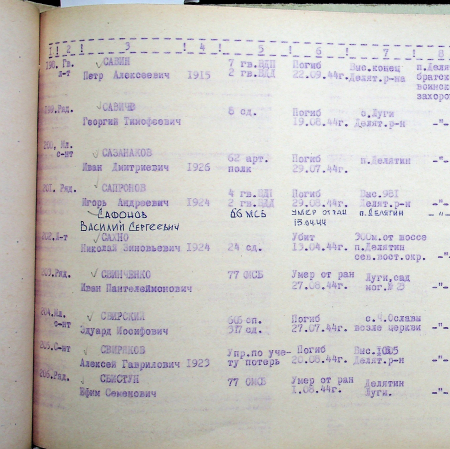 1 2 3 4 5 6 7 8
198. Гв. САВИН 7 гв.ВДП Погиб Выс.конец п.Делят
л-т Петр Алексеевич 1915 2 гв.ВДД 22.09.44г. Делят.р-на братск
воинск
захоро
199.Ряд. САВИЧЕВ 8 сд. Погиб с.Луги
Георгий Тимофеевич 19.08.44г. Делят.р-н -"-
200. Мл. САЗАНАКОВ 62 арт. Погиб п.Делятин
с-нт Иван Дмитриевич 1926 полк 29.07.44г. -"-
201. Ряд. САПРОНОВ 4 гв.ВДП Погиб Выс.981
Игорь Андреевич 1924 2 гв.ВДД 29.08.44г. Делят.р-н -"-
САФОНОВ 86 МСБ УМЕР ОТ РАН П. ДЕЛЯТИН
ВАСИЛИЙ СЕРГЕЕВИЧ 15.04.44
202. Л-т САХНО Убит 300м.от шоссе
Николай Зиновьевич 1924 24 сд. 13.04.44г. п.Делятин -"-
сев.вост.окр.
203.Ряд. СВИНЧЕНКО 77 ОМСБ Умер от ран Луги,сад
Иван Пантелеймонович 27.08.44г. мог.№23 -"-
204.Мл. СВИРСКИЙ Погиб с.Ч.Ославы
с-нт Эдуард Иосифович 317 сд. 27.07.44г. возле церкви -"-
205.С-нт СВИРЕНОВ Упр.по уче- Погиб
Алексей Гаврилович 1923 ту потерь 20.08.44г. Делят.р-н -"-
206.Ряд. СВИСТУН 77 ОМСБ Умер от ран Делятин
Ефим Семенович 1.08.44г. Луги. -"-